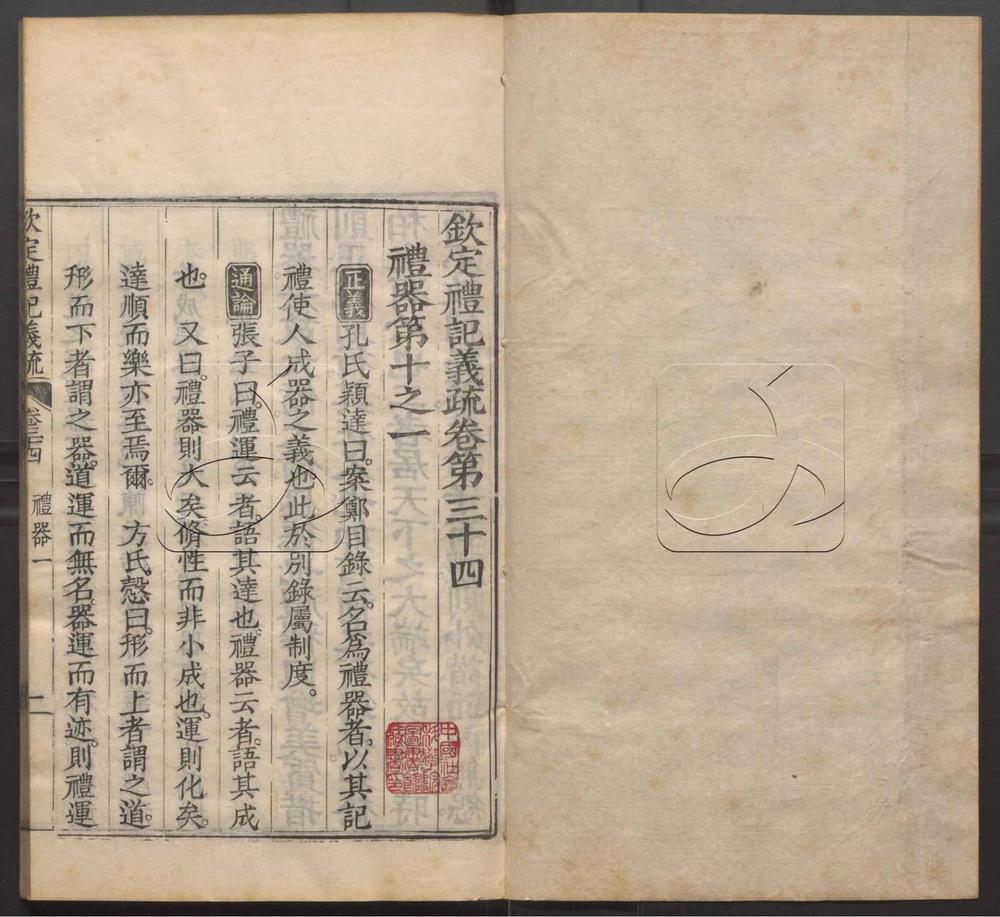 欽定禮記義疏卷第三十四
禮器第十之一
正義 孔氏穎達曰。案鄭目錄云。名爲禮器者。以其記
禮使人成器之義也此於別錄屬制度。
通論 張子曰。禮運云者。語其達也。禮器云者。語其成
也。又曰。禮器則大矣。脩性而非小成也。運則化矣。
達順而樂亦至焉爾。方氏慤曰。形而上者謂之道。
形而下者謂之器。道運而無名。器運而有迹。則禮運
欽定禮記義疏 卷三十四 禮器一 二